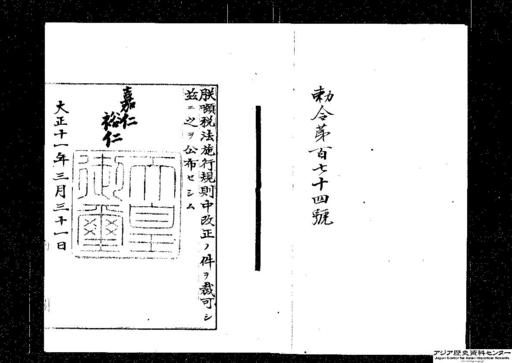 勅令第百七十四號
朕顯税法施行規則中改正ノ件ヲ裁可シ
茲ニ之ヲ公布セシム
嘉仁
裕仁
天皇御璽
大正十一年三月三十一日
アジア歴史資料センター
Japan Center for Asian Historical Records